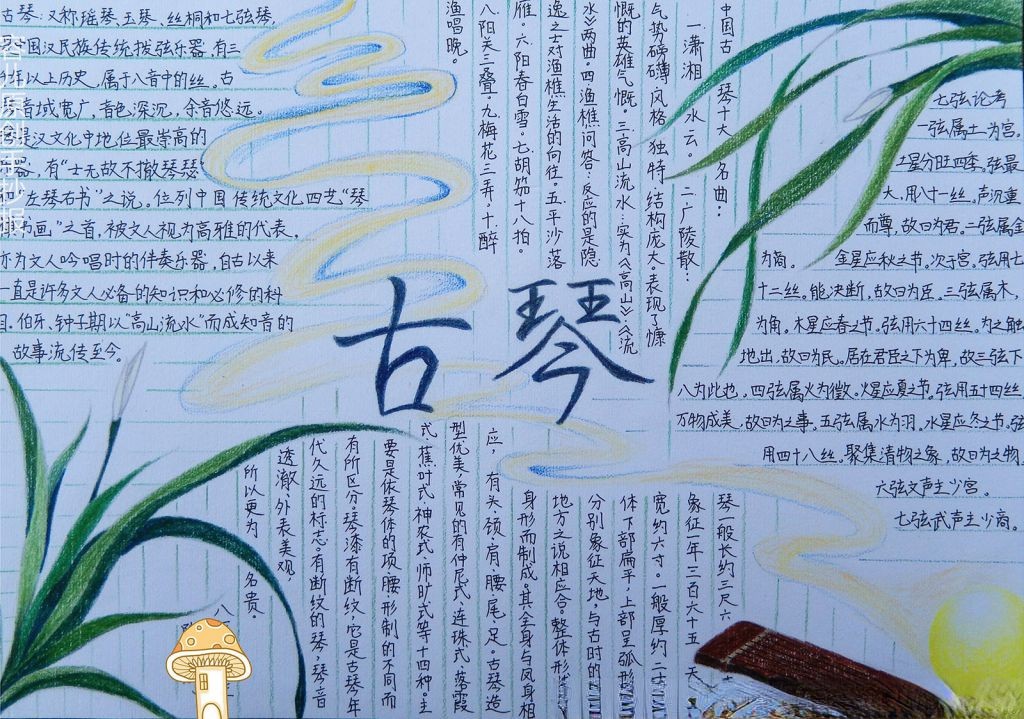 古琴：又称瑶琴、玉琴、丝桐和七弦琴，
中国汉民族传统拨弦乐器，有三
年以上历史，属于八音中的丝。古
琴音域宽广，音色深沉，余音悠远。
是汉文化中地位最崇高的
乐器，有“士无故不撤琴瑟”
和“左琴右书”之说。位列中国传统文化四艺“琴
棋书画”之首，被文人视为高雅的代表，
亦为文人吟唱时的伴奏乐器，自古以来
一直是许多文人必备的知识和必修的科
目。伯牙、钟子期以“高山流水”而成知音的
故事流传至今。
中国古琴十大名曲：
一潇湘水云。二广陵散：
气势磅礴，风格独特结构庞大。表现了慷
慨的英雄气慨。三高山流水：实为《高山》《流
水》两曲。四渔樵问答：反应的是隐
逸之士对渔樵生活的向往。五平沙落
雁。六阳春白雪。七胡笳十八拍。
八阳关三叠。九梅花三弄。十醉
渔唱晚。
七弦论考
一弦属土为宫。
土星分旺四季。弦最
大，用八十一丝。声沉重
而尊，故曰为君。二弦属金
为商。金星应秋之节。次于宫。弦用七
十二丝。能决断，故曰为臣。三弦属木，
为角。木星应春之节。弦用六十四丝。为之触
地出，故曰为民。居在君臣之下为卑，故三弦下
八为此也，四弦属火为徵。火星应夏之节。弦用五十四丝
万物成美，故曰为之事。五弦属水为羽。水星应冬之节。弦
用四十八丝。聚集清物之象，故曰为之物
六弦文声主少宫。
七弦武声主少商。
古琴
琴一般长约三尺六
象征一年三百六十五天
宽约六寸。一般厚约二寸
体下部扁平，上部呈弧形
分别象征天地，与古时的
地方之说相应合。整体形
身形而制成。其全身与凤身相
应，有头、颈、肩、腰、尾、足。古琴造
型优美，常见的有仲尼式、连珠式、落霞
式、蕉叶式、神农式、师旷式等十四种。主
要是依琴体的项、腰形制的不同而
有所区分。琴漆有断纹，它是古琴年
代久远的标志。有断纹的琴，琴音
透澈、外表美观，
所以更为名贵。
八